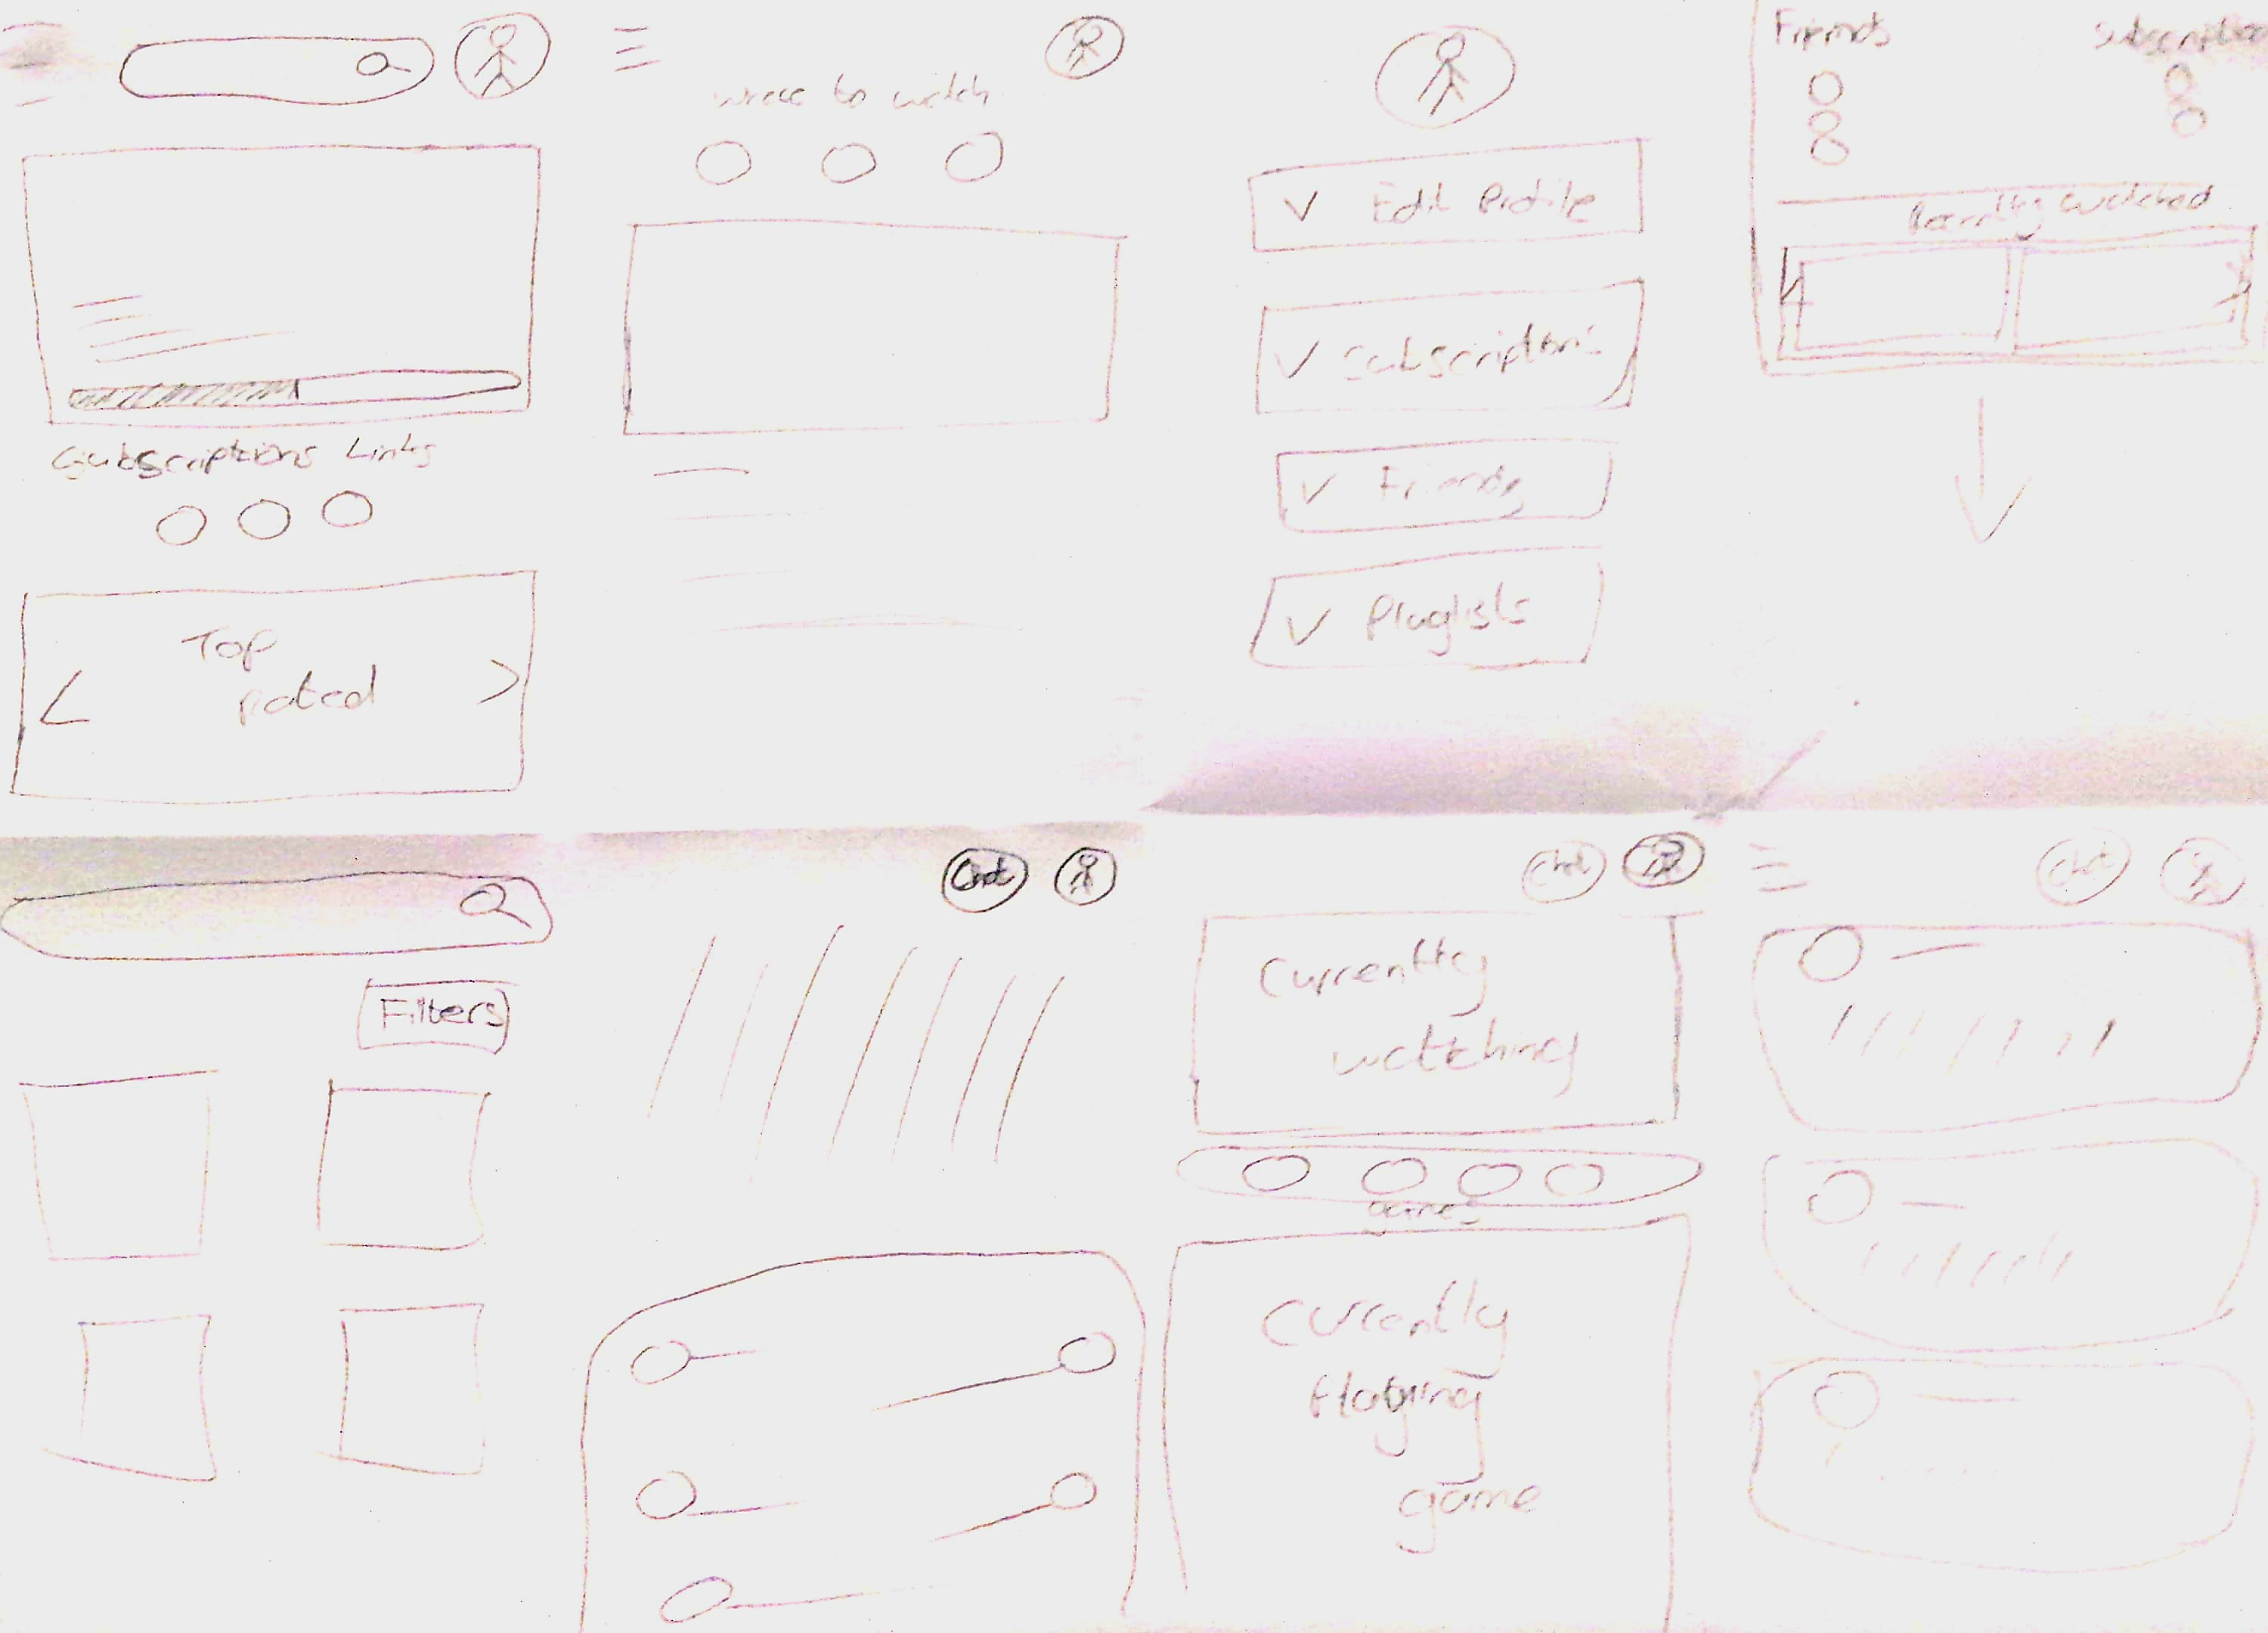 Subscriptions Links
Top
rated
where to watch
Edit Profile
Subscriptions
Friends
Playlists
Friends
Subscription
Recently Watched
Filters
Chat
Chat
Currently
watching
games
Currently
Playing
game
Chat